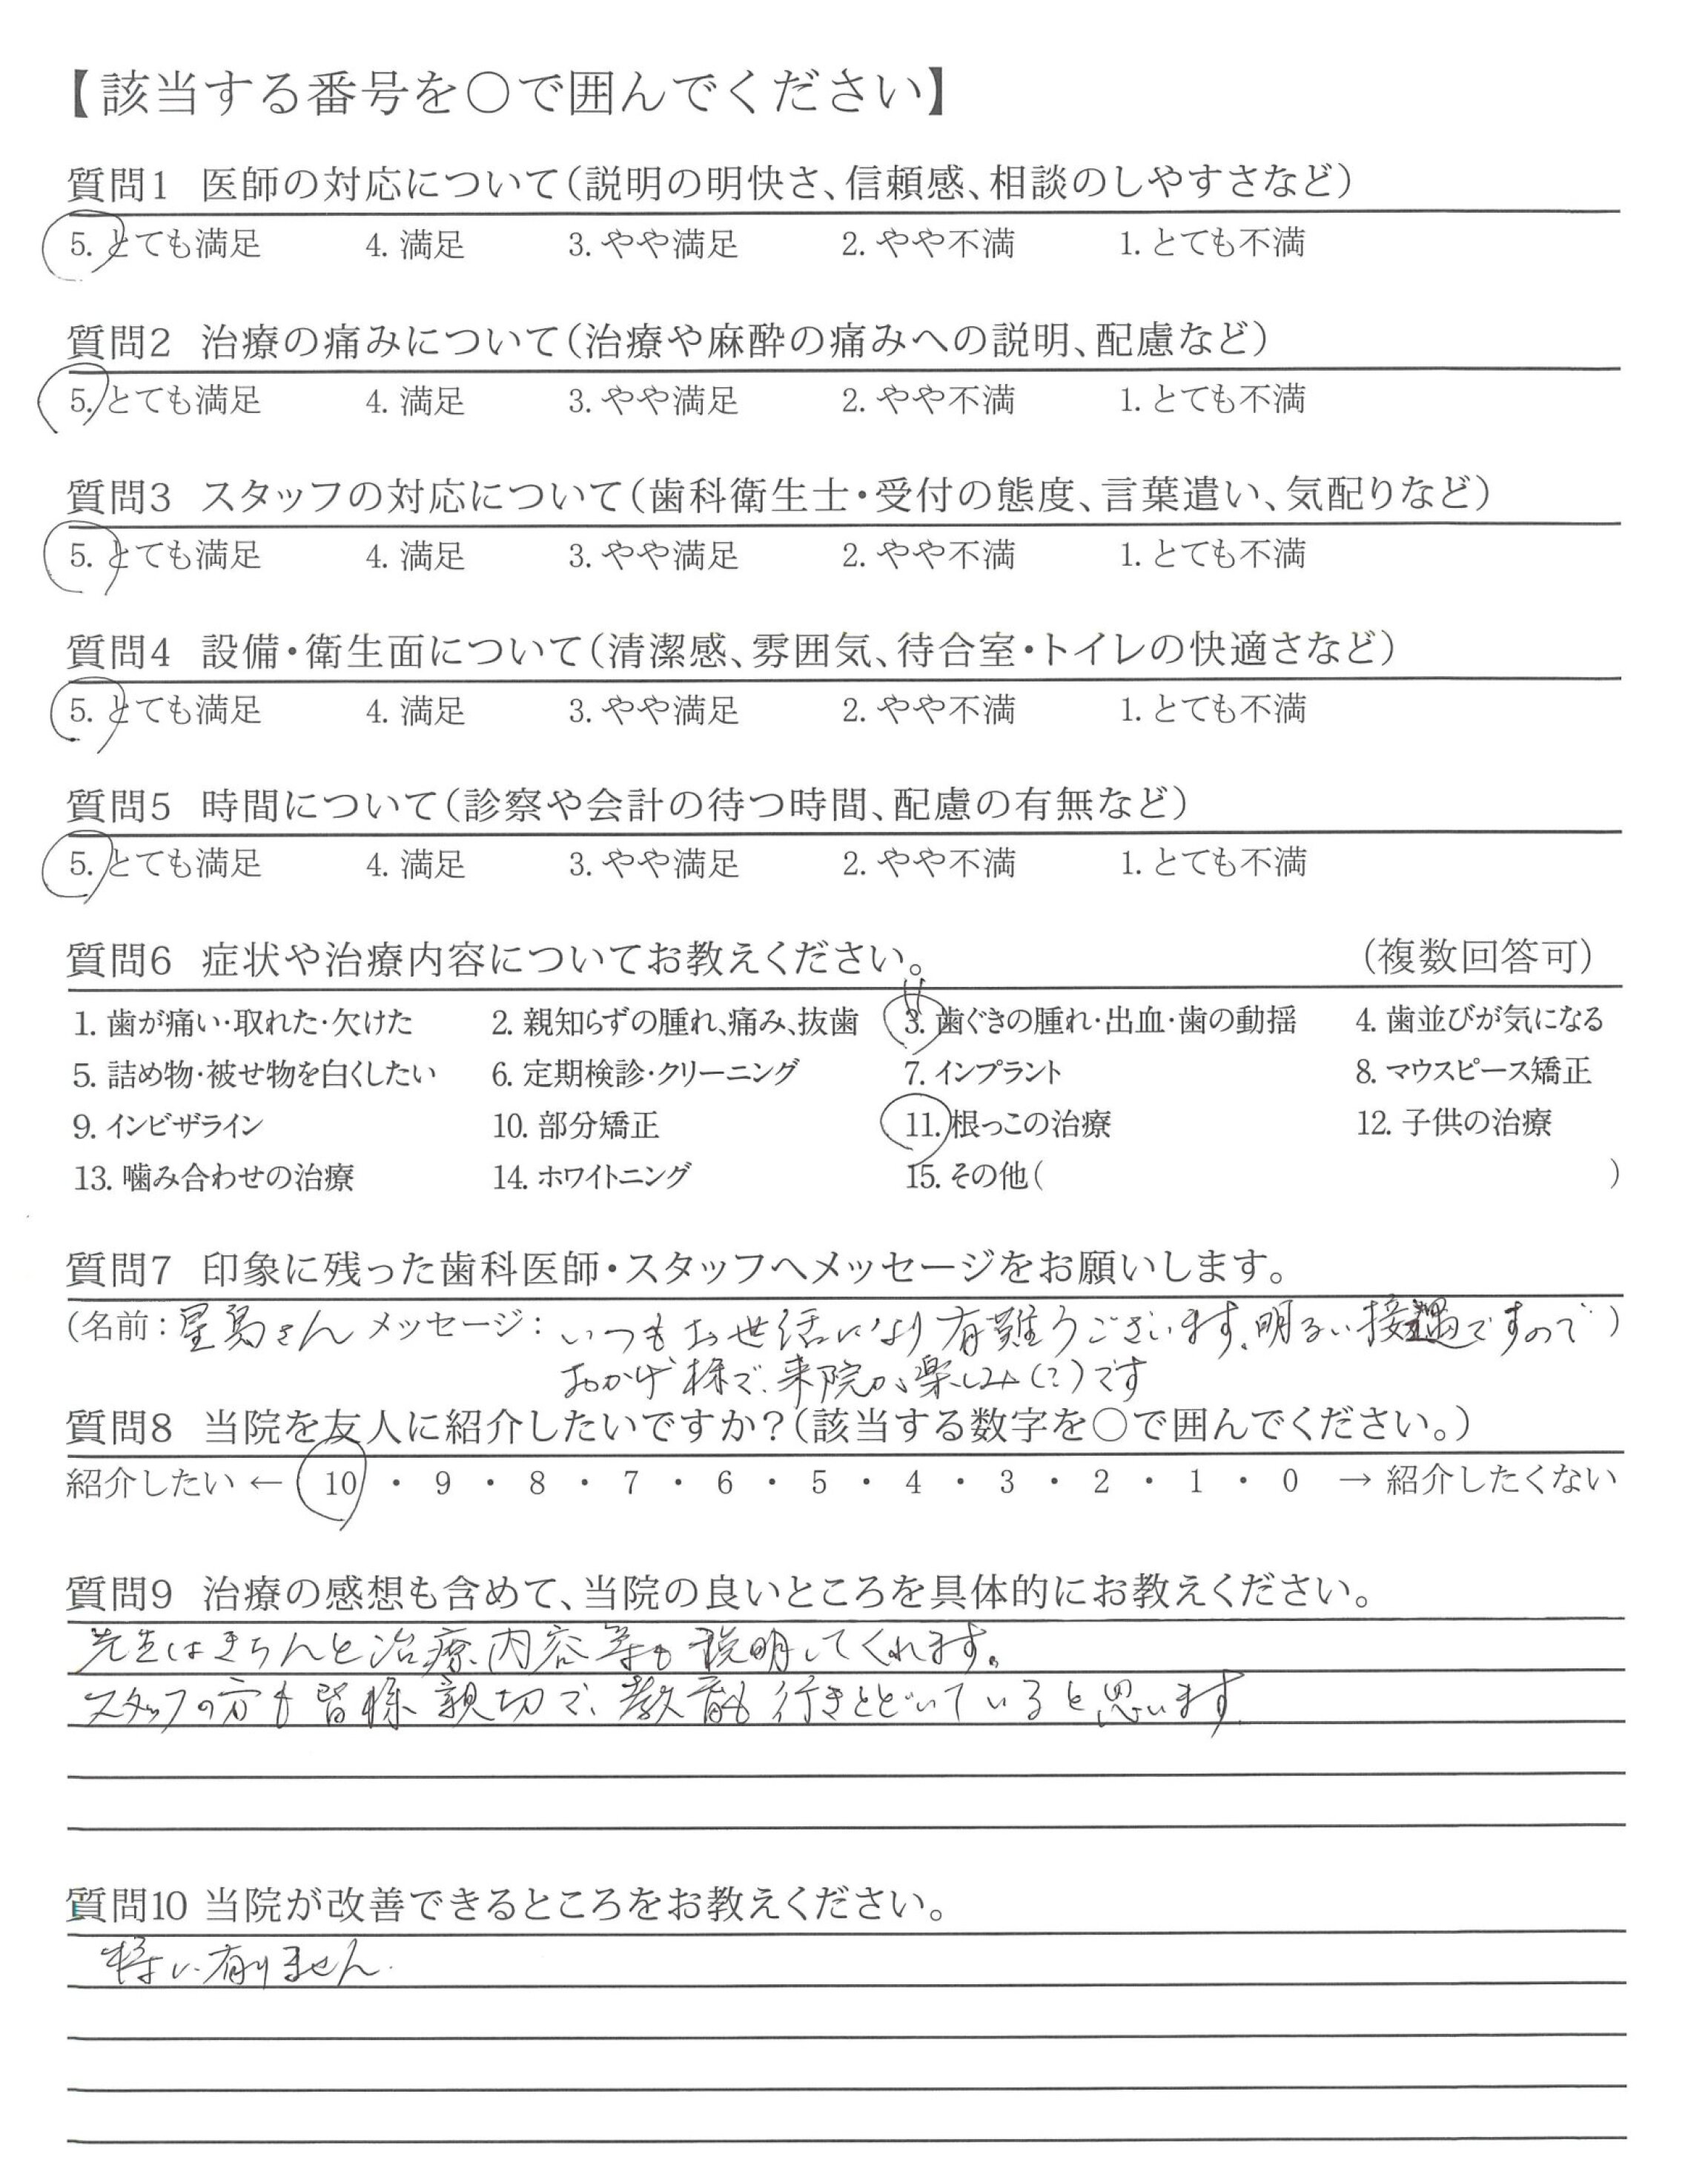 【該当する番号を○で囲んでください】
質問1 医師の対応について(説明の明快さ、信頼感、相談のしやすさなど)
5. とても満足 4. 満足 3. やや満足 2. やや不満 1. とても不満
質問2 治療の痛みについて(治療や麻酔の痛みへの説明、配慮など)
5. とても満足 4. 満足 3. やや満足 2. やや不満 1. とても不満
質問3 スタッフの対応について(歯科衛生士・受付の態度、言葉遣い、気配りなど)
5. とても満足 4. 満足 3. やや満足 2. やや不満 1. とても不満
質問4 設備・衛生面について(清潔感、雰囲気、待合室・トイレの快適さなど)
5. とても満足 4. 満足 3. やや満足 2. やや不満 1. とても不満
質問5 時間について(診察や会計の待つ時間、配慮の有無など)
5. とても満足 4. 満足 3. やや満足 2. やや不満 1. とても不満
質問6 症状や治療内容についてお教えください。 (複数回答可)
1. 歯が痛い・取れた・欠けた 2. 親知らずの腫れ、痛み、抜歯 3. 歯ぐきの腫れ・出血・歯の動揺 4. 歯並びが気になる
5. 詰め物・被せ物を白くしたい 6. 定期検診・クリーニング 7. インプラント 8. マウスピース矯正
9. インビザライン 10. 部分矯正 11. 根っこの治療 12. 子供の治療
13. 噛み合わせの治療 14. ホワイトニング 15. その他( )
質問7 印象に残った歯科医師・スタッフへメッセージをお願いします。
(名前：星島さん メッセージ：いつもお世話になり有難うございます。明るい接遇ですので)
おかげ様で、来院が楽しみ(?)です
質問8 当院を友人に紹介したいですか？(該当する数字を○で囲んでください。)
紹介したい ← 10 ・ 9 ・ 8 ・ 7 ・ 6 ・ 5 ・ 4 ・ 3 ・ 2 ・ 1 ・ 0 → 紹介したくない
質問9 治療の感想も含めて、当院の良いところを具体的にお教えください。
先生はきちんと治療内容等も説明してくれます。
スタッフの方も皆様親切で、教育も行きとどいていると思います
質問10 当院が改善できるところをお教えください。
特に有りません.